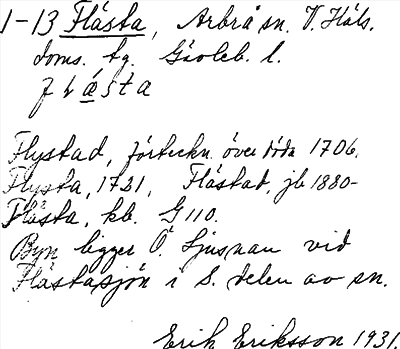 1-13 Flåsta, Arbrå sn. V. Häls.
doms. tg. Gävleb. l.
flåsta
Flystad, förteckn. över döda 1706.
Flysta, 1721, Flåstad, jb 1880-
Flåsta, kb. G 110.
Byn ligger Ö. Ljusnan vid
Flåstasjön i S. delen av sn.
Erik Eriksson 1931.